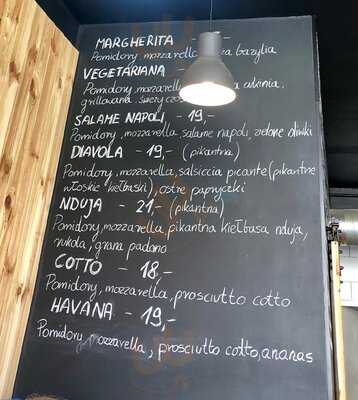 MARGHERITA -
Pomidory, mozzarella, bazylia
VEGETARIANA -
Pomidory, mozzarella,
grillowana, świeży
SALAME NAPOLI, - 19,-
Pomidory, mozzarella, salame napoli, zielone oliwki
DIAVOLA - 19,- (pikantna)
Pomidory, mozzarella, salsiccia picante (pikantne
włoskie kiełbaski), ostre papryczki
NDUJA - 21,- (pikantna)
Pomidory, mozzarella, pikantna kiełbasa nduja,
rukola, grana padano
COTTO - 18,-
Pomidory, mozzarella, prosciutto cotto
HAVANA - 19,-
Pomidory, mozzarella, prosciutto cotto, ananas